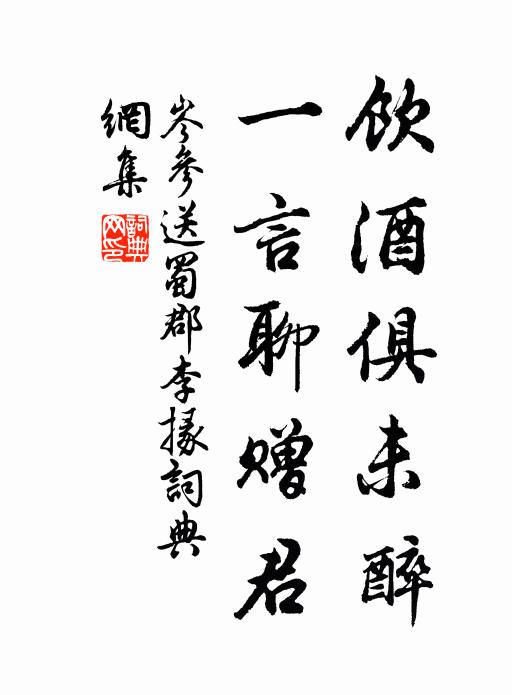 飲酒俱未醉
一言聊赠君
岑參送蜀郡李掾詞典
網集
詞典
网印